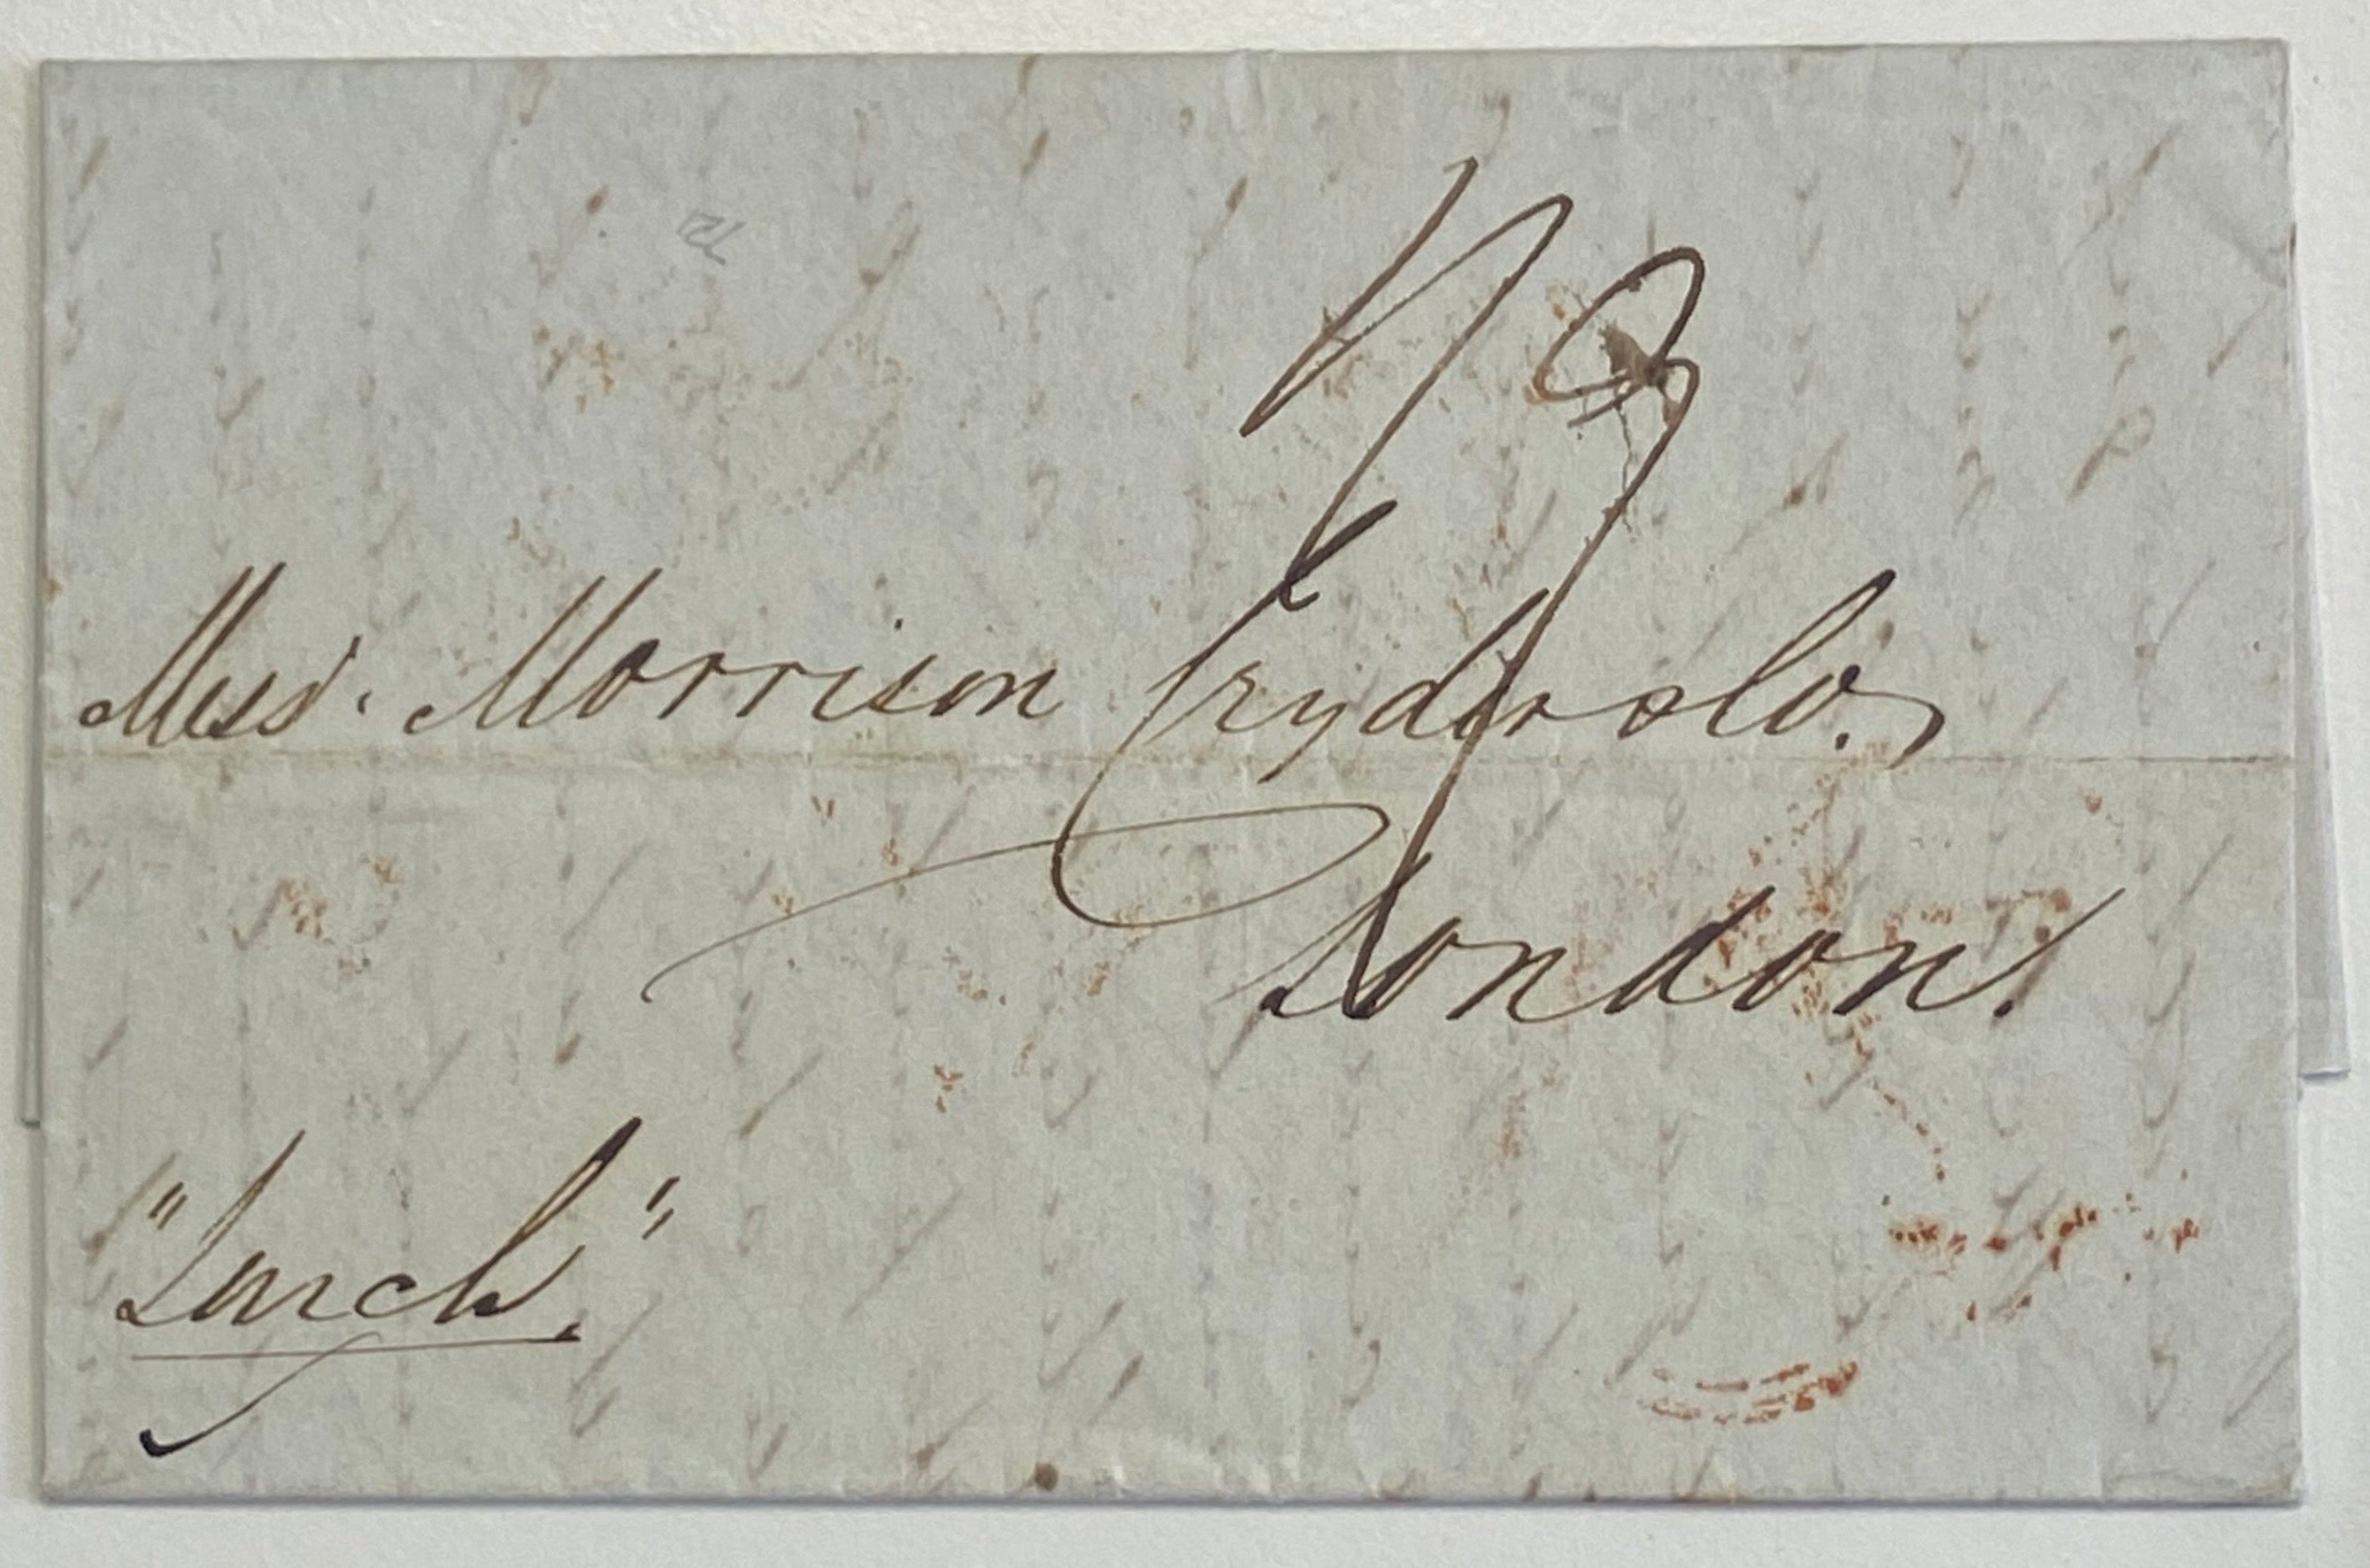 Messrs. Morrison Cryder & Co.
London.
"Larch".